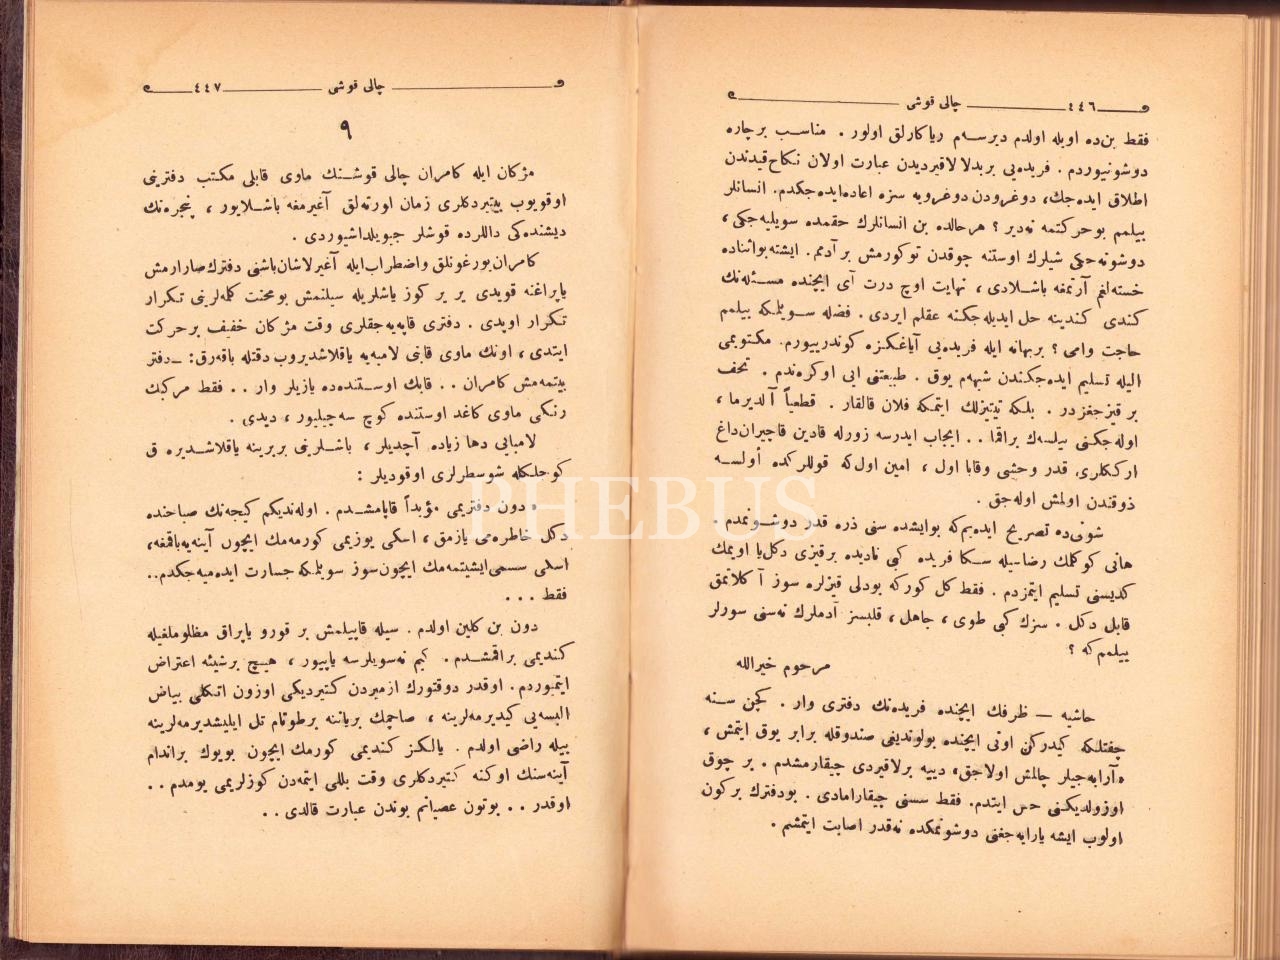 ٤٤٦ چالی قوشی
فقط بن‌ده اویله اولدم دیرسه‌م ریاکارلق اولور . مناسب برچاره
دوشونیوردم . فریده‌یی بر بدلا لاقیردیدن عبارت اولان نکاح قیدندن
اطلاق ایده‌جك، دوغرودن دوغرویه سزه اعاده ایده‌جکدم. انسانلر
بیلمم بو حرکتمه نه‌دیر ؟ هر حالده بن انسانلرك حقمده سویلیه‌جکی ،
دوشونه‌جکی شیلرك اوستنه چوقدن توکورمش بر آدمم. ایشته بو اثناده
خسته‌لغم آرتمغه باشلادی ، نهایت اوچ درت آی ایچنده مسئله‌نك
کندی کندینه حل ایدیله‌جکنه عقلم ایردی . فضله سویلمکه بیلمم
حاجت وامی ؟ بر بهانه ایله فریده‌یی آیاغکزه کوندرییورم. مکتوبمی
الیله تسلیم ایده‌جکندن شبهه‌م یوق . طبیعتنی ایی اوکره‌ندم . تحف
بر قیزجغزدر . بلکه تیتیزلك ایتمکه فلان قالقار . قطعیاً آلدیرما ،
اوله‌جکنی بیلسه‌ك براقما . . ایجاب ایدرسه زورله قادین قاچیران داغ
ارککلری قدر وحشی وقابا اول ، امین اول‌که قوللرکده اولسه
ذوقندن اولمش اوله‌جق .
شونی‌ده تصریح ایده‌یم‌که بو ایشده سنی ذره قدر دوشونمدم .
هانی کوکلك رضاسیله سکا فریده کبی نادیده بر قیزی دکل یا اویمك
کدیسنی تسلیم ایتمزدم . فقط کل کورکه بو دلی قیزلره سوز آکلاتمق
قابل دکل . سزك کبی طوی ، جاهل ، قلبسز آدملرك نه‌سنی سورلر
بیلمم که ؟
مرحوم خیرالله
حاشیه — ظرفك ایچنده فریده‌نك دفتری وار . کچن سنه
چفتلکه کیدرکن اونی ایچنده بولوندیغی صندوقله برابر یوق ایتمش ،
«آرابه‌جیلر چالمش اولاجق» دییه بر لاقیردی چیقارمشدم . بر چوق
اوزولدیکنی حس ایتدم. فقط سسنی چیقارامادی . بو دفترك برکون
اولوب ایشه یارایه‌جغنی دوشونمکده نه‌قدر اصابت ایتمشم .
٤٤٧ چالی قوشی
٩
مژکان ایله کامران چالی قوشنك ماوی قابلی مکتب دفترینی
اوقویوب بیتیردکلری زمان اورته‌لق آغیرمغه باشلایور ، پنجره‌نك
دیشنده‌کی داللرده قوشلر جیویلداشیوردی .
کامران یورغونلق واضطراب ایله آغیرلاشان باشنی دفترك صارارمش
یاپراغنه قویدی یر یر کوز یاشلریله سیلنمش بو محنت کله‌لرینی تکرار
تکرار اوپدی . دفتری قاپه‌یه‌جقلری وقت مژکان خفیف بر حرکت
ایتدی ، اونك ماوی قابنی لامبه‌یه یاقلاشدیروب دقتله باقه‌رق: – دفتر
بیتمه‌مش کامران . . قابك اوستنده‌ده یازیلر وار . . فقط مرکبك
رنکی ماوی کاغد اوستنده کوچ سه‌چیلیور ، دیدی .
لامبایی دها زیاده آچدیلر ، باشلرینی بربرینه یاقلاشدیره ق
کوجلکله شو سطرلری اوقودیلر :
« دون دفتریمی مؤبداً قاپامشدم . اوله‌ندیکم کیجه‌نك صباحنده
دکل خاطره‌می یازمق ، اسکی یوزیمی کورمه‌مك ایچون آینه‌یه باقمغه،
اسکی سسمی ایشیتمه‌مك ایچون سوز سویلمکه جسارت ایده‌میه‌جکدم..
فقط . . .
دون بن کلین اولدم . سیله قاپیلمش بر قورو یاپراق مظلوملغیله
کندیمی براقمشدم . کیم نه‌سویلرسه یاپیور ، هیچ بر شیئه اعتراض
ایتمیوردم. اوقدر دوقتورك ازمیردن کتیردیکی اوزون اتکلی بیاض
البسه‌یی کیدیرمه‌لرینه ، صاچمك بر یاننه بر طوتام تل ایلیشدیرمه‌لرینه
بیله راضی اولدم . یالکز کندیمی کورمك ایچون بویوك بر اندام
آینه‌سنك اوکنه کتیردکلری وقت بللی ایتمه‌دن کوزلریمی یومدم . .
اوقدر . . بوتون عصیانم بوندن عبارت قالدی . .
PHEBUS